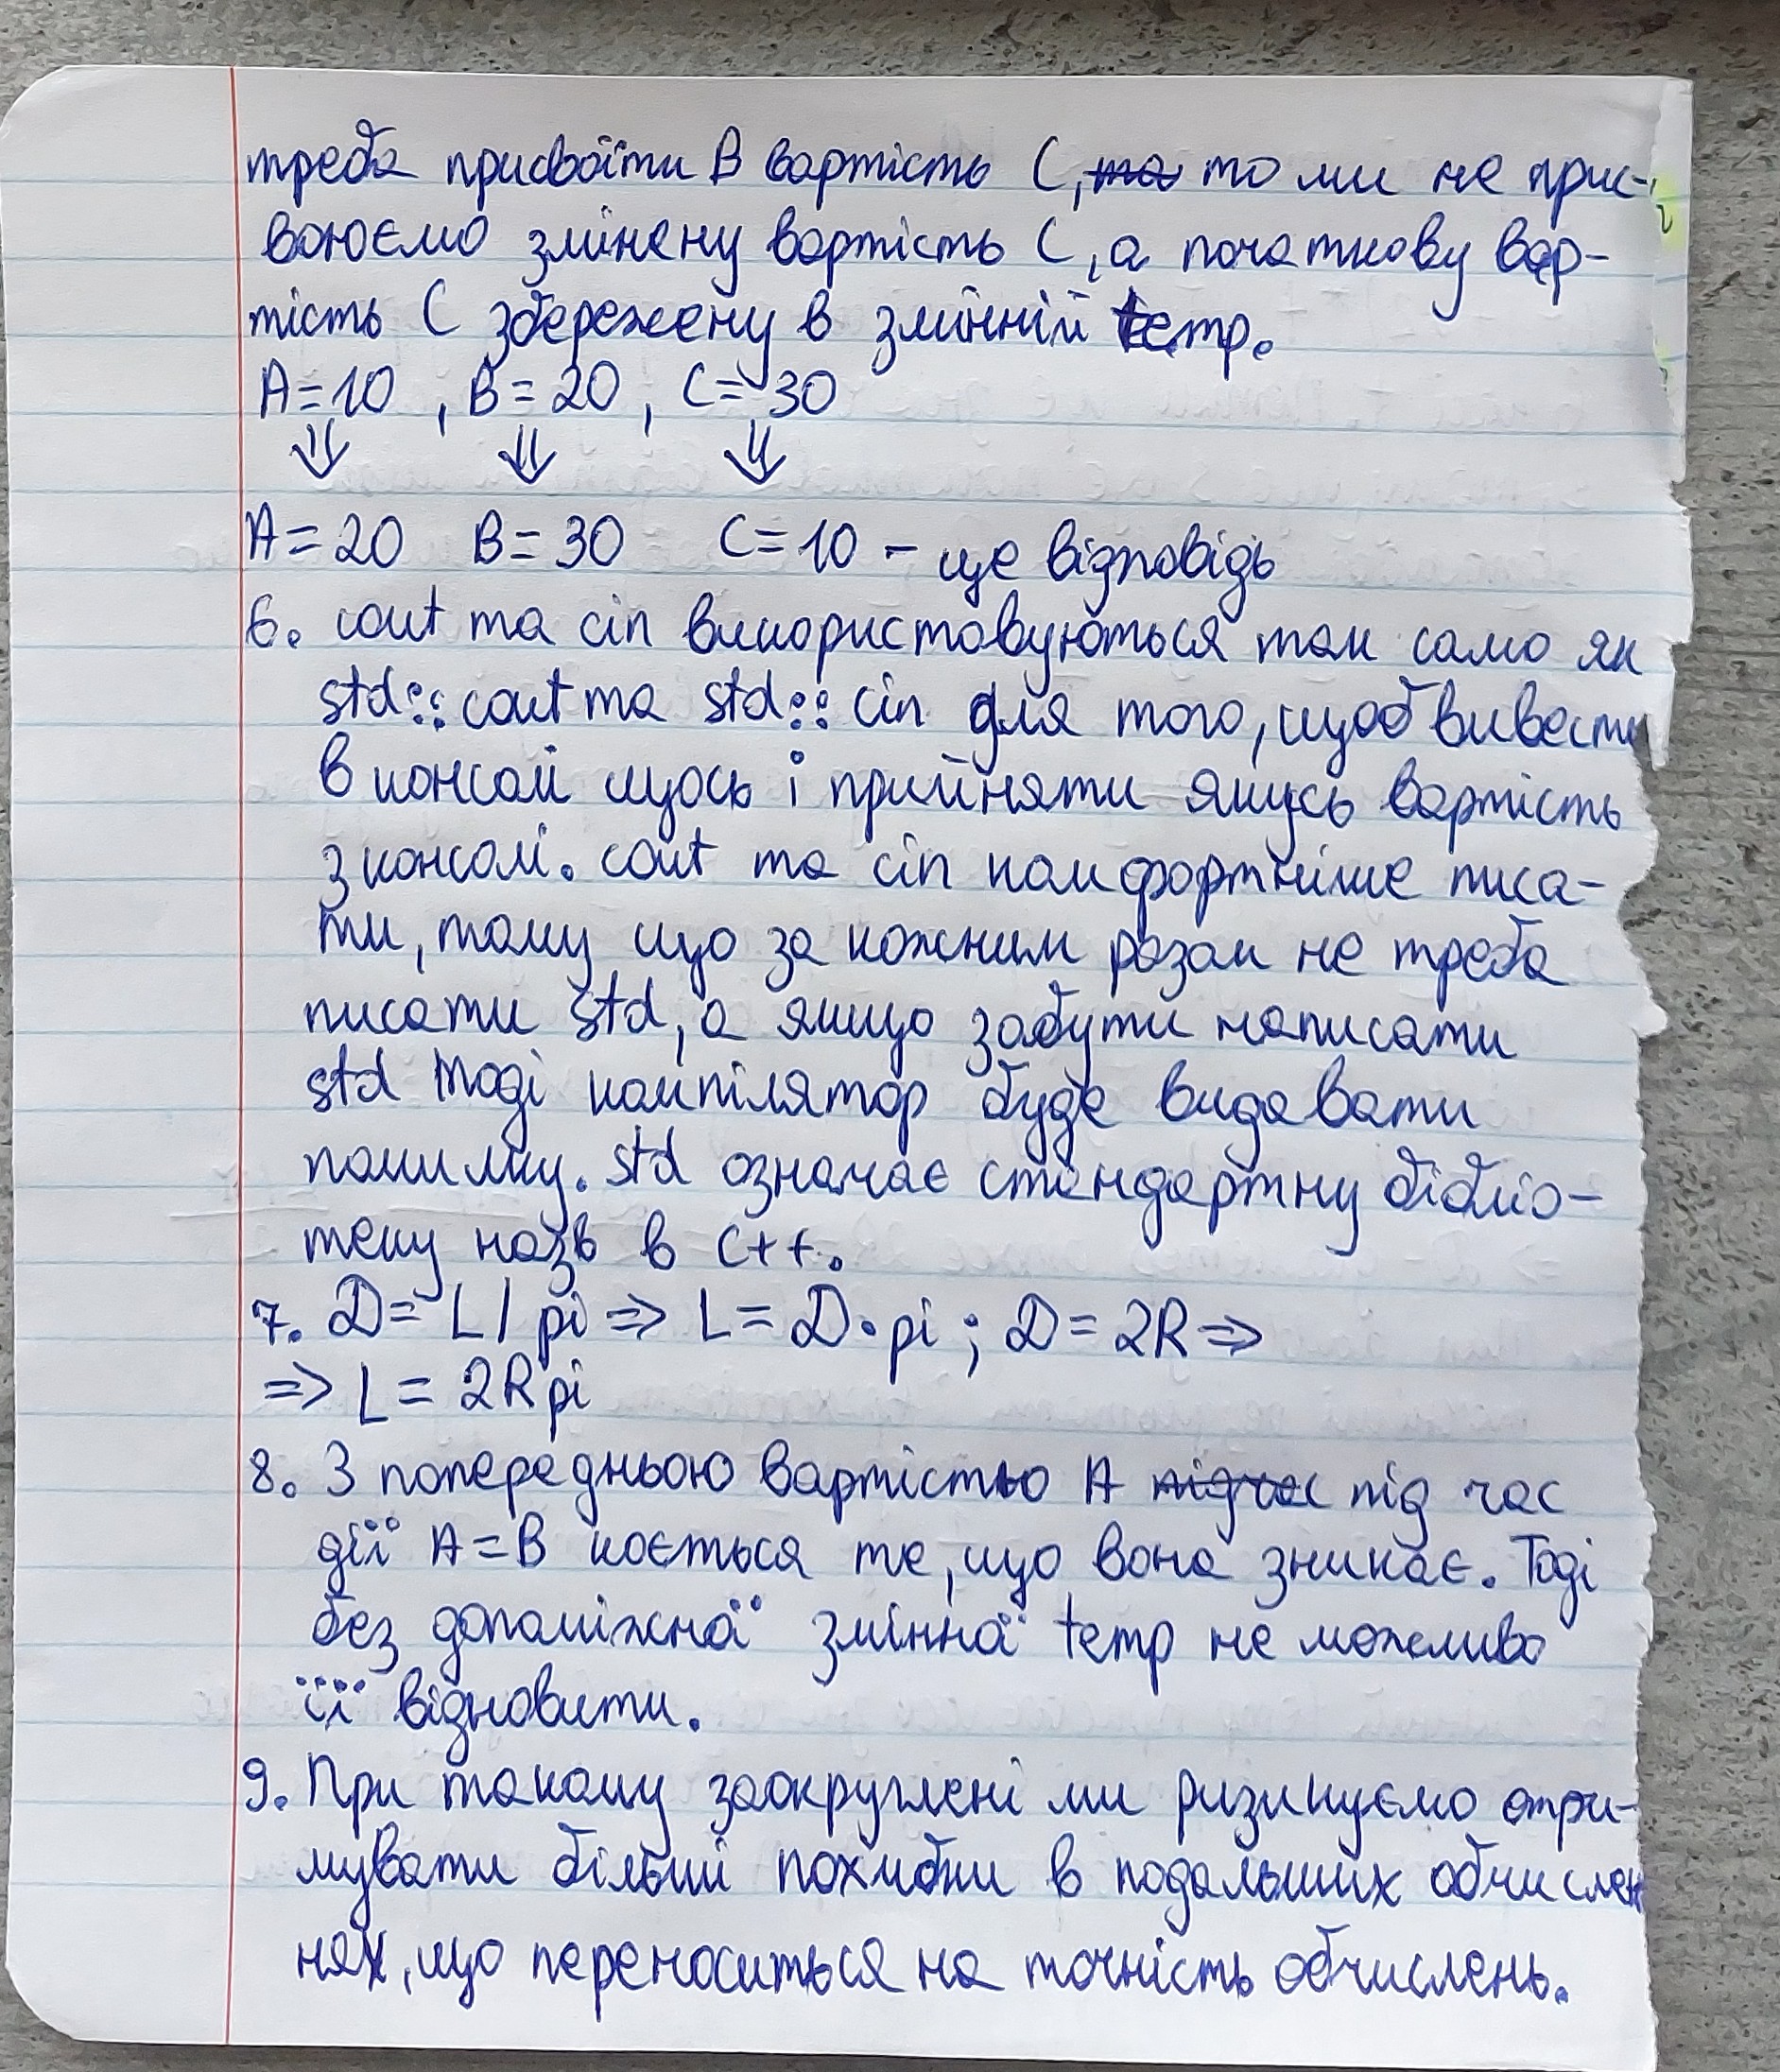 треба присвоїти B вартість C, та то ми не прис-
воюємо змінену вартість C, а початкову вар-
тість C збережену в змінній temp.
A=10 , B=20 , C=30
⇓ ⇓ ⇓
A=20 B=30 C=10 - це відповідь
6. cout та cin використовуються так само як
std::cout та std::cin для того, щоб вивести
в консолі щось і прийняти якусь вартість
з консолі. cout та cin комфортніше писа-
ти, тому що за кожним разом не треба
писати std, а якщо забути написати
std тоді компілятор буде видавати
помилку. std означає стандартну бібліо-
теку назв в C++.
7. D= L/pi => L= D·pi ; D=2R =>
=> L= 2Rpi
8. З попередньою вартістю A підчас під час
дії A=B коється те, що вона зникає. Тоді
без допоміжної змінної temp не можливо
її відновити.
9. При такому заокруглені ми ризикуємо отри-
мувати більші похибки в подальших обчислен
нях, що переноситься на точність обчислень.